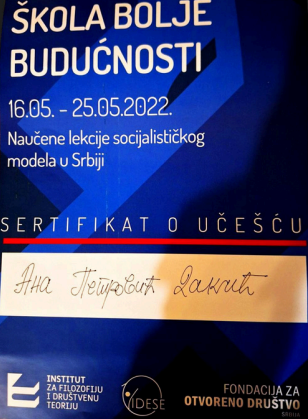 ŠKOLA BOLJE
BUDUĆNOSTI
16.05. - 25.05.2022.
Naučene lekcije socijalističkog
modela u Srbiji
SERTIFIKAT O UČEŠĆU
Ана Петровић Дакић
INSTITUT
ZA FILOZOFIJU
I DRUŠTVENU
TEORIJU
IDESE
FONDACIJA ZA
OTVORENO DRUŠTVO
SRBIJA